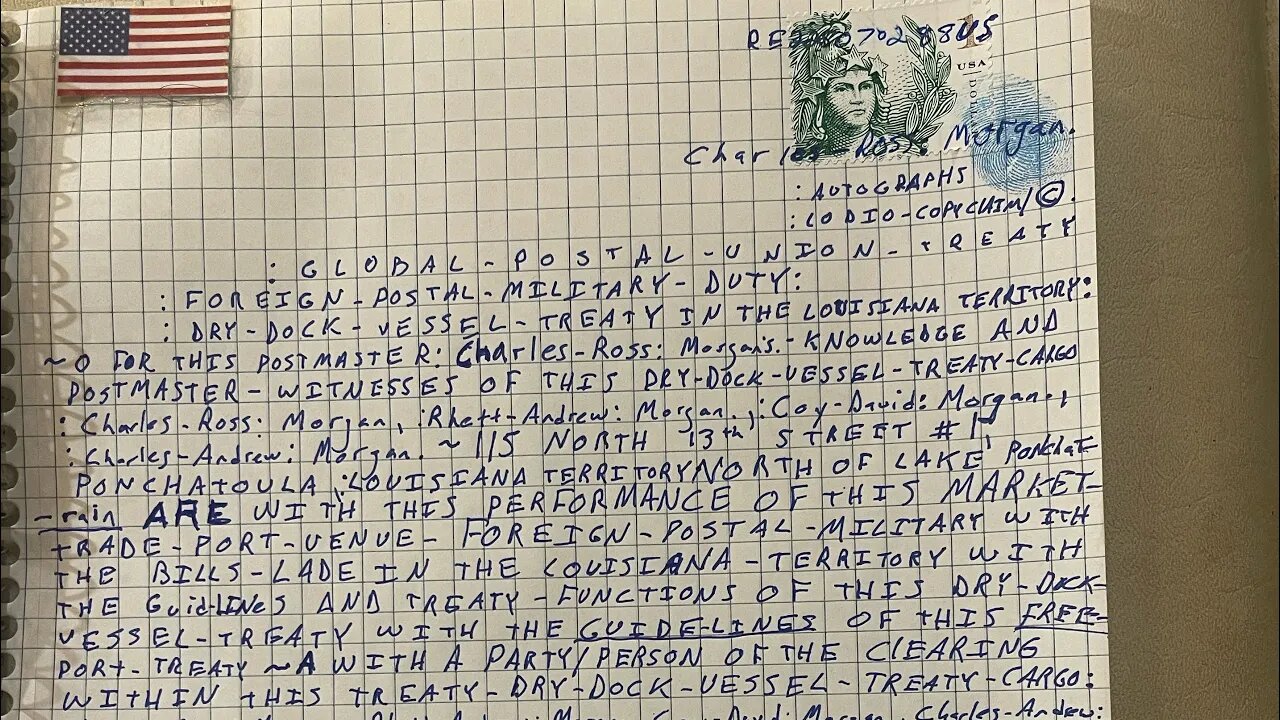 US
USA
Charles Ross: Morgan.
: AUTOGRAPHS
: LODIO-COPYCLAIM/©.
: GLOBAL-POSTAL-UNION-TREATY
: FOREIGN-POSTAL-MILITARY-DUTY:
: DRY-DOCK-VESSEL-TREATY IN THE LOUISIANA TERRITORY:
~0 FOR THIS POSTMASTER: Charles-Ross: Morgan's.-KNOWLEDGE AND
POSTMASTER-WITNESSES OF THIS DRY-DOCK-VESSEL-TREATY-CARGO
: Charles-Ross: Morgan, :Rhett-Andrew: Morgan., :Coy-David: Morgan.,
: Charles-Andrew: Morgan. ~115 NORTH 13th STREET #1,
PONCHATOULA, :LOUISIANA TERRITORY/NORTH OF LAKE PONCHAT-
-rain ARE WITH THIS PERFORMANCE OF THIS MARKET-
TRADE-PORT-VENUE-FOREIGN-POSTAL-MILITARY WITH
THE BILLS-LADE IN THE LOUISIANA-TERRITORY WITH
THE GuidLINes AND TREATY-FUNCTIONS OF THIS DRY-DOCK-
VESSEL-TREATY WITH THE GUIDE-LINES OF THIS FREE-
PORT-TREATY ~A WITH A PARTY/PERSON OF THE CLEARING
WITHIN THIS TREATY-DRY-DOCK-VESSEL-TREATY-CARGO:
Morgan, Charles-Andrew: